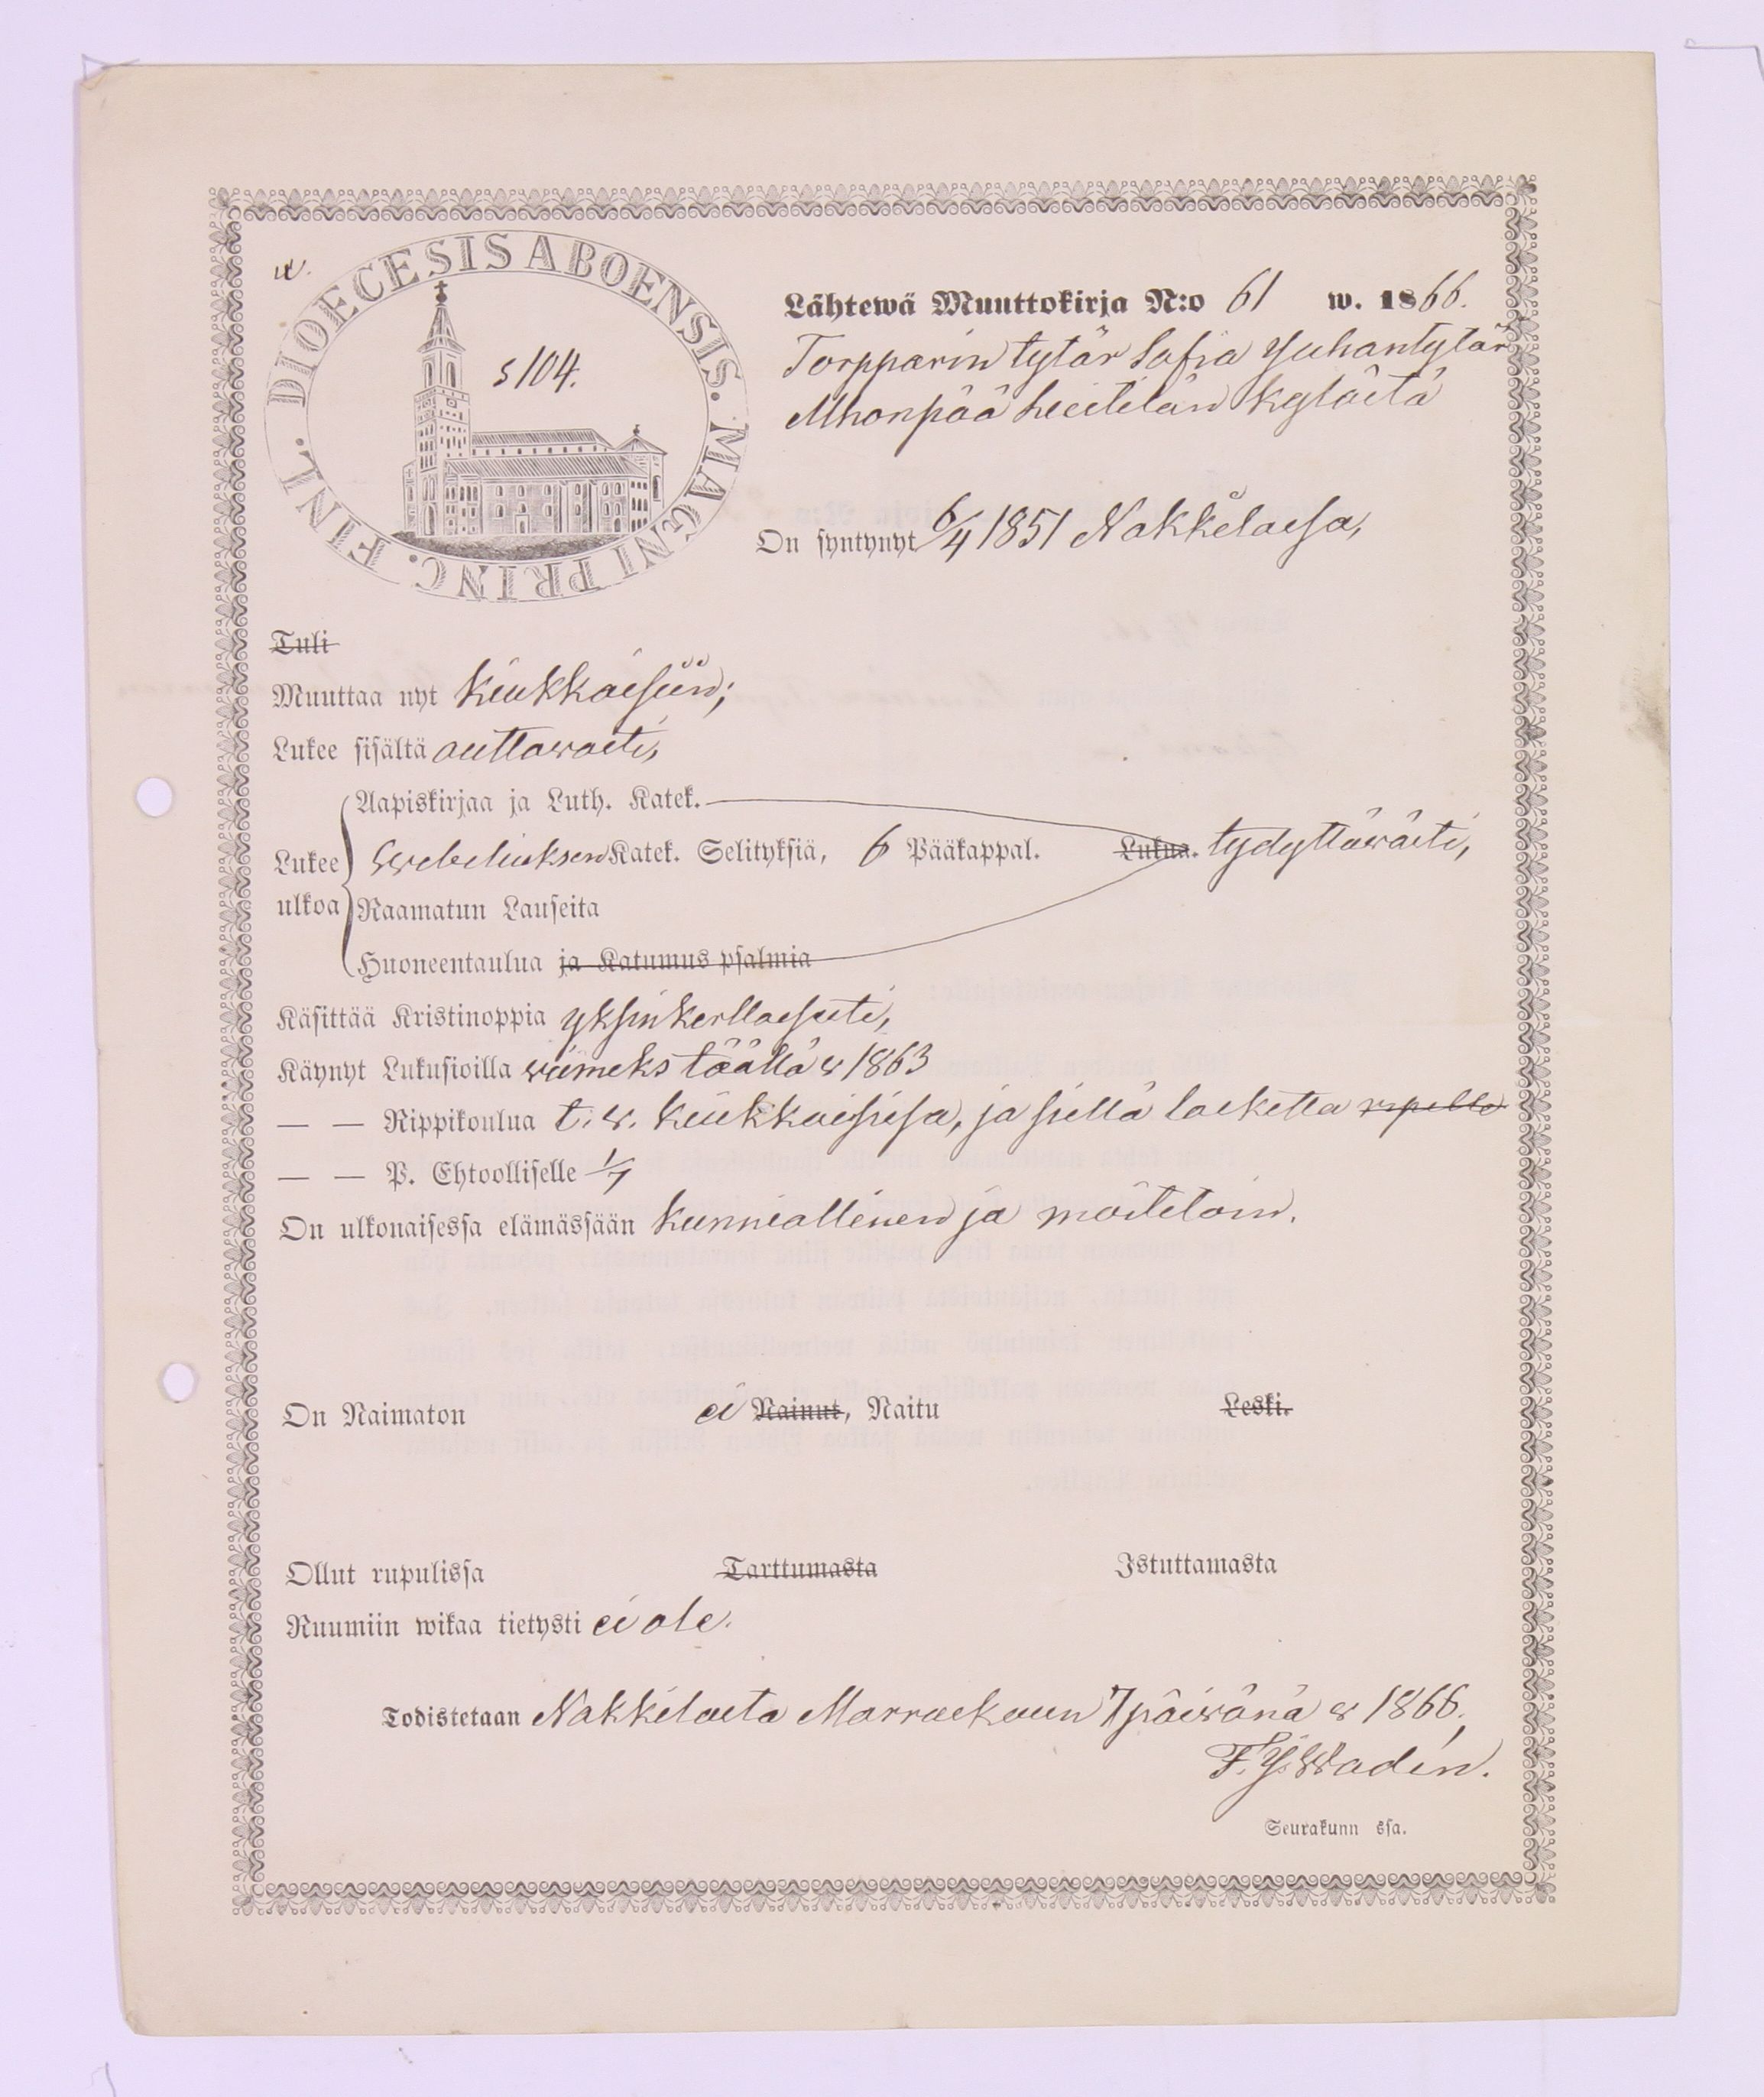 DIOECESIS ABOENSIS. MAGNI PRINC. FINL.
s 104.
Lähtewä Muuttokirja N:o 61 w. 1866.
Torpparin tytär Sofia Juhantytär
Lieitilän kylästä
On syntynyt 6/4 1851 Nakkilassa,
Tuli
Muuttaa nyt Kiukkaisiin;
Lukee sisältä auttawasti,
Aapiskirjaa ja Luth. Katek.
Lukee Swebeliuksen Katek. Selityksiä, 6 Pääkappal. Lukua. tydyttäwästi,
ulkoa Raamatun Lauseita
Huoneentaulua ja Katumus psalmia
Käsittää Kristinoppia yksinkertasesti,
Käynyt Lukusioilla wiimeks täällä w 1863
— — Rippikoulua t. w. Kiukkaisisa, ja sieltä lasketta
— — P. Ehtoolliselle 1/7
On ulkonaisessa elämässään kunniallinen ja moitetoin.
On Naimaton ei Nainut, Naitu Leski.
Ollut rupulissa Tarttumasta Istuttamasta
Ruumiin wikaa tietysti ei ole.
Todistetaan Nakkilasta Marraskuun 7 päiwänä w 1866.
F. J. Wadén.
Seurakunn ssa.